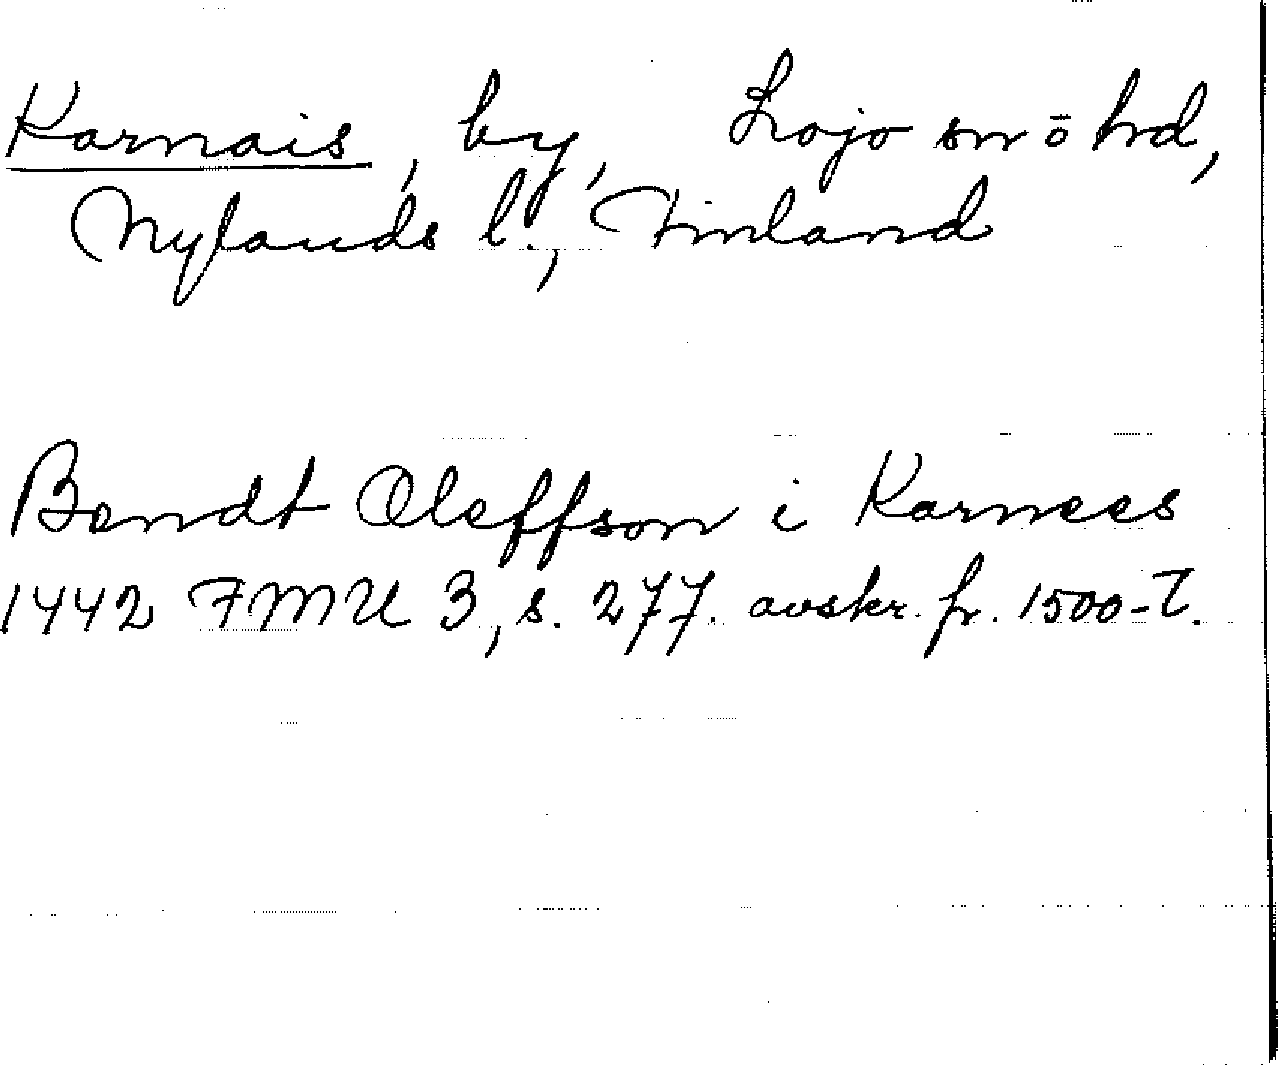 Karnais, by, Lojo sn o hd,
Nylands l., Finland
Bendt Oleffson i Karnees
1442 FMU 3, s. 277. avskr. fr. 1500-t.